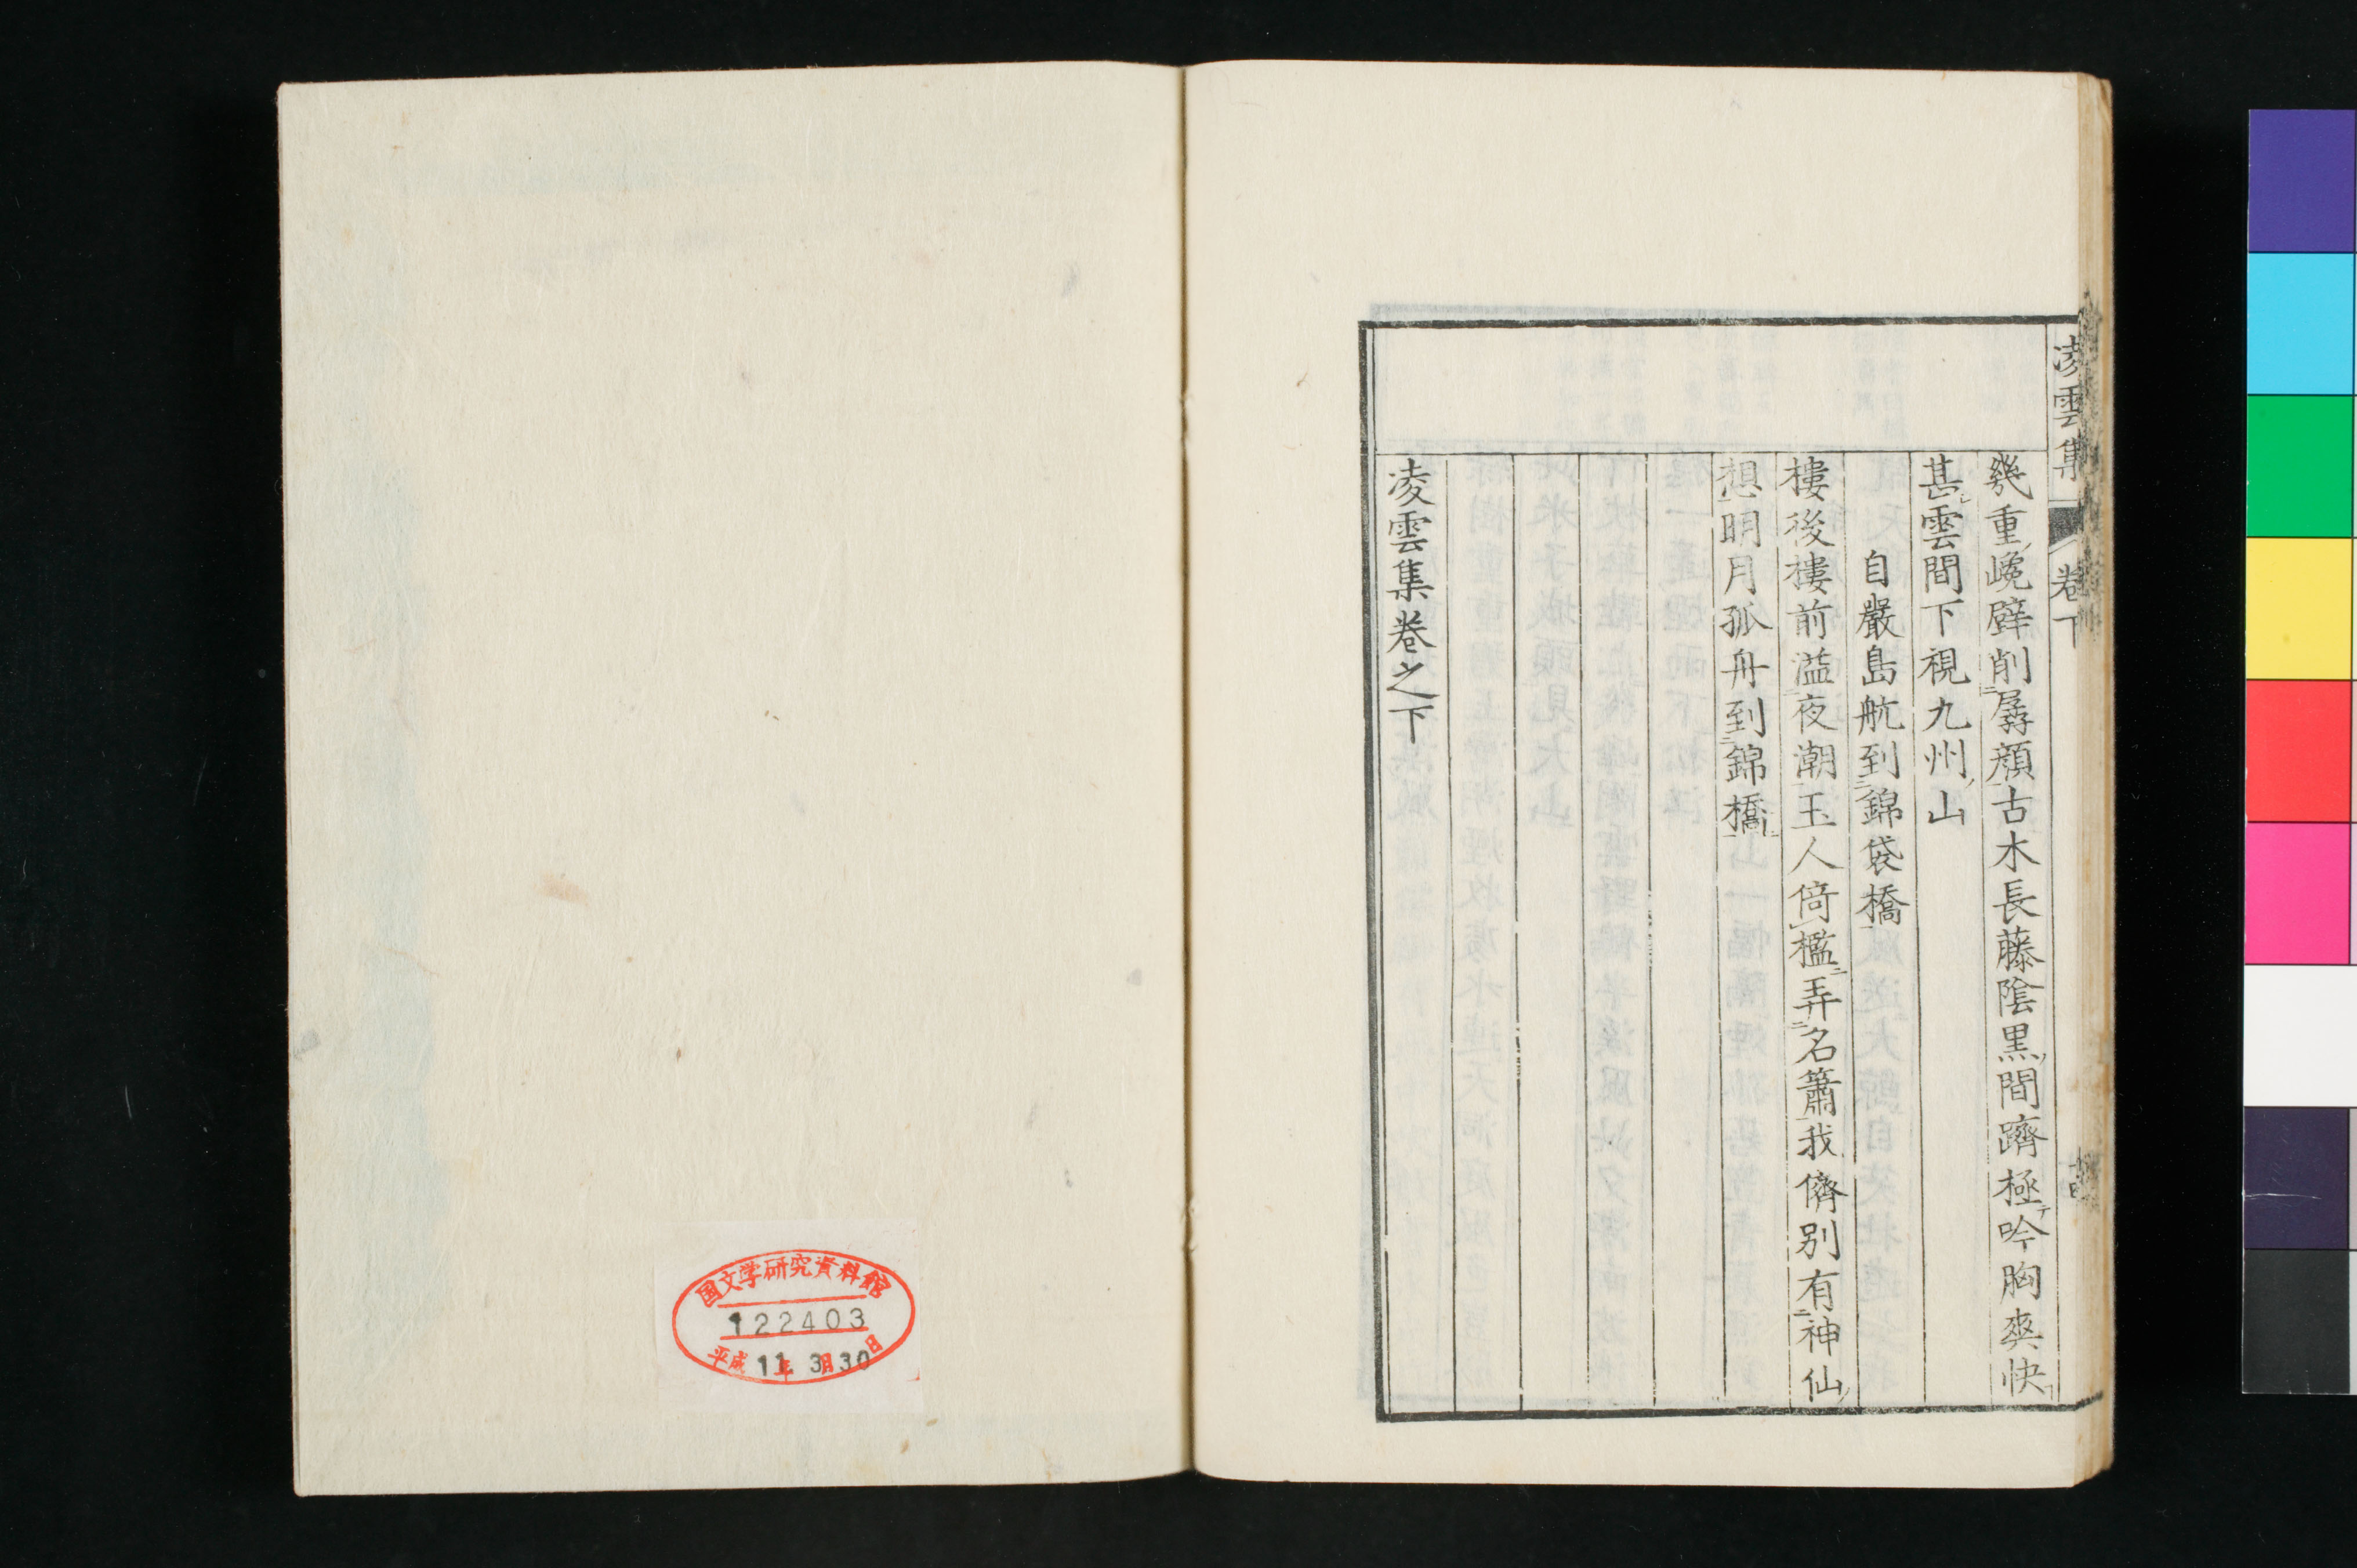 凌雲集 卷下
幾重巉壁削孱顏古木長藤陰黑間躋極吟胸爽快
甚雲間下視九州山
自嚴島航到錦袋橋
樓後樓前溢夜潮玉人倚檻弄名簫我儕別有神仙
想明月孤舟到錦橋
凌雲集卷之下
国文学研究資料館
122403
平成11年3月30日